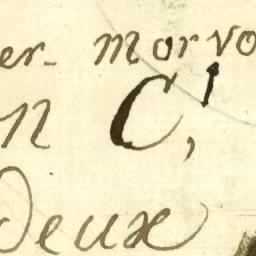 er. morvo
n C,
Deux